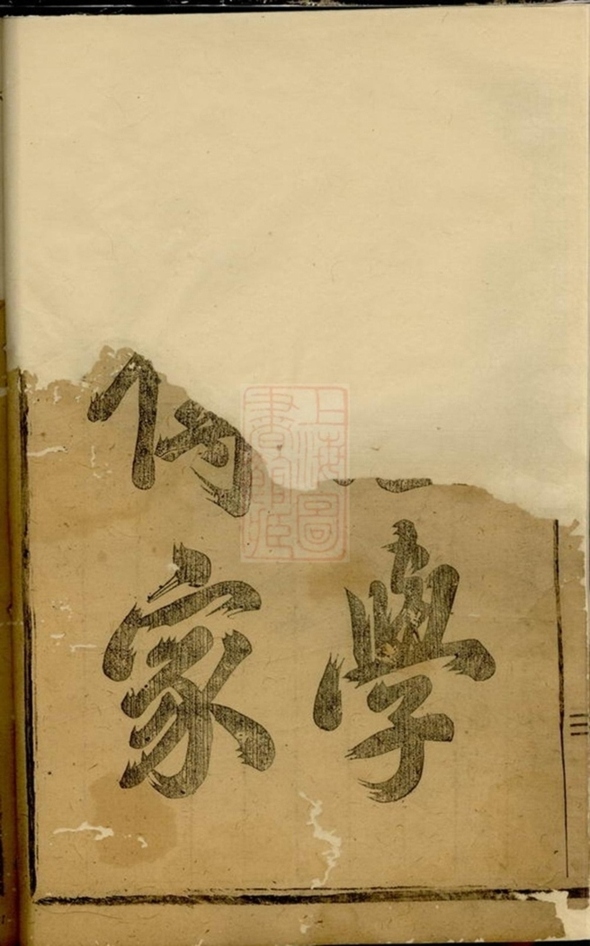 學
家
上海圖
書館藏